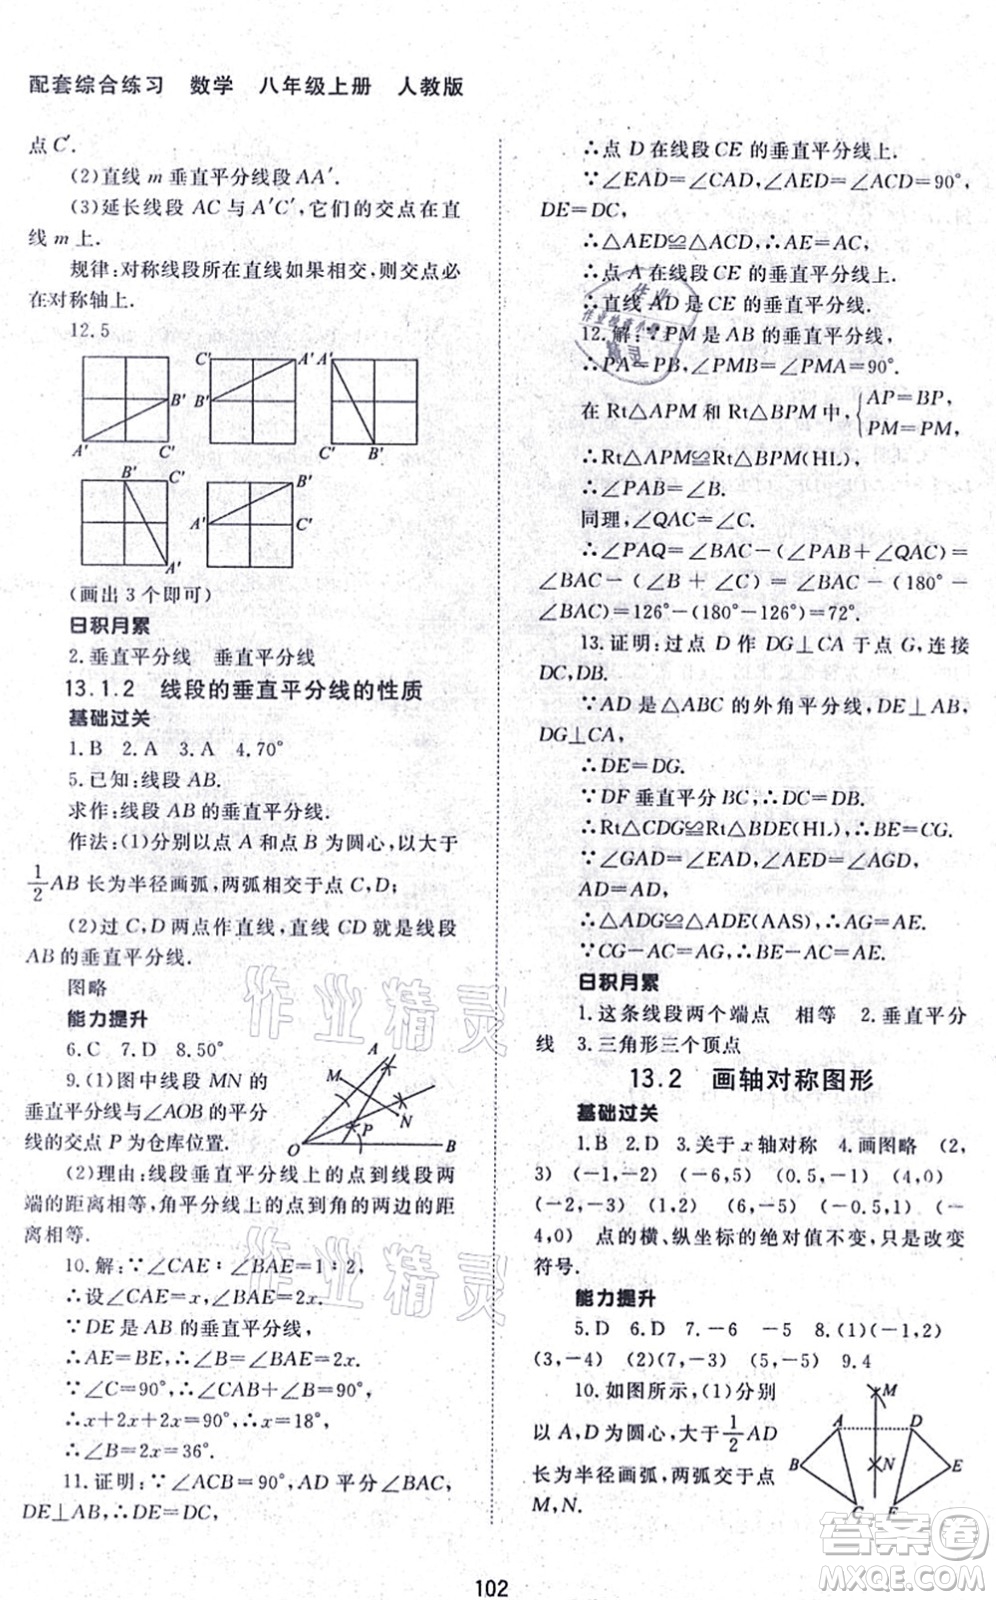 配套综合练习 数学 八年级上册 人教版
点 C′.
(2)直线 m 垂直平分线段 AA′.
(3)延长线段 AC 与 A′C′,它们的交点在直
线 m 上.
规律:对称线段所在直线如果相交,则交点必
在对称轴上.
12.5
A′ B′ C′
C′ A′ B′
A′ C′ B′
B′ C′ A′
B′ A′ C′
(画出 3 个即可)
日积月累
2.垂直平分线 垂直平分线
13.1.2 线段的垂直平分线的性质
基础过关
1.B 2.A 3.A 4.70°
5.已知:线段 AB.
求作:线段 AB 的垂直平分线.
作法:(1)分别以点 A 和点 B 为圆心,大于
1/2 AB 长为半径画弧,两弧相交于点 C,D;
(2)过 C,D 两点作直线,直线 CD 就是线段
AB 的垂直平分线.
图略
能力提升
6.C 7.D 8.50°
9.(1)图中线段 MN 的
垂直平分线与∠AOB 的平分
线的交点 P 为仓库位置.
A M N P O B
(2)理由:线段垂直平分线上的点到线段两
端的距离相等,角平分线上的点到角的两边的距
离相等.
10.解:∵∠CAE∶∠BAE=1∶2,
∴设∠CAE=x,∠BAE=2x.
∵DE 是 AB 的垂直平分线,
∴AE=BE,∴∠B=∠BAE=2x.
∵∠C=90°,∴∠CAB+∠B=90°,
∴x+2x+2x=90°,∴x=18°,
∴∠B=2x=36°.
11.证明:∵∠ACB=90°,AD 平分∠BAC,
DE⊥AB,∴DE=DC,
∴点 D 在线段 CE 的垂直平分线上.
∵∠EAD=∠CAD,∠AED=∠ACD=90°,
DE=DC,
∴△AED≌△ACD,∴AE=AC,
∴点 A 在线段 CE 的垂直平分线上.
∴直线 AD 是 CE 的垂直平分线.
12.解:∵PM 是 AB 的垂直平分线,
∴PA=PB,∠PMB=∠PMA=90°.
在 Rt△APM 和 Rt△BPM 中,{AP=BP,
PM=PM,
∴Rt△APM≌Rt△BPM(HL),
∴∠PAB=∠B.
同理,∠QAC=∠C.
∴∠PAQ=∠BAC-(∠PAB+∠QAC)=
∠BAC-(∠B+∠C)=∠BAC-(180°-
∠BAC)=126°-(180°-126°)=72°.
13.证明:过点 D 作 DG⊥CA 于点 G,连接
DC,DB.
∵AD 是△ABC 的外角平分线,DE⊥AB,
DG⊥CA,
∴DE=DG.
∵DF 垂直平分 BC,∴DC=DB.
∴Rt△CDG≌Rt△BDE(HL),∴BE=CG.
∵∠GAD=∠EAD,∠AED=∠AGD,
AD=AD,
∴△ADG≌△ADE(AAS),∴AG=AE.
∵CG-AC=AG,∴BE-AC=AE.
日积月累
1.这条线段两个端点 相等 2.垂直平分
线 3.三角形三个顶点
13.2 画轴对称图形
基础过关
1.B 2.D 3.关于 x 轴对称 4.画图略 (2,
3) (-1,-2) (-6,5) (0.5,-1) (4,0)
(-2,-3) (1,2) (6,-5) (-0.5,1) (-
4,0) 点的横、纵坐标的绝对值不变,只是改变
符号.
能力提升
5.D 6.D 7.-6 -5 8.(1)(-1,-2)
(3,-4) (2)(1,-2) (5,-5) 9.4
10.如图所示,(1)分别
以 A,D 为圆心,大于 1/2 AD
长为半径画弧,两弧交于点
M,N.
M A D B N E C F
作业精灵
作业精灵
答案卷
MXQE.COM
102